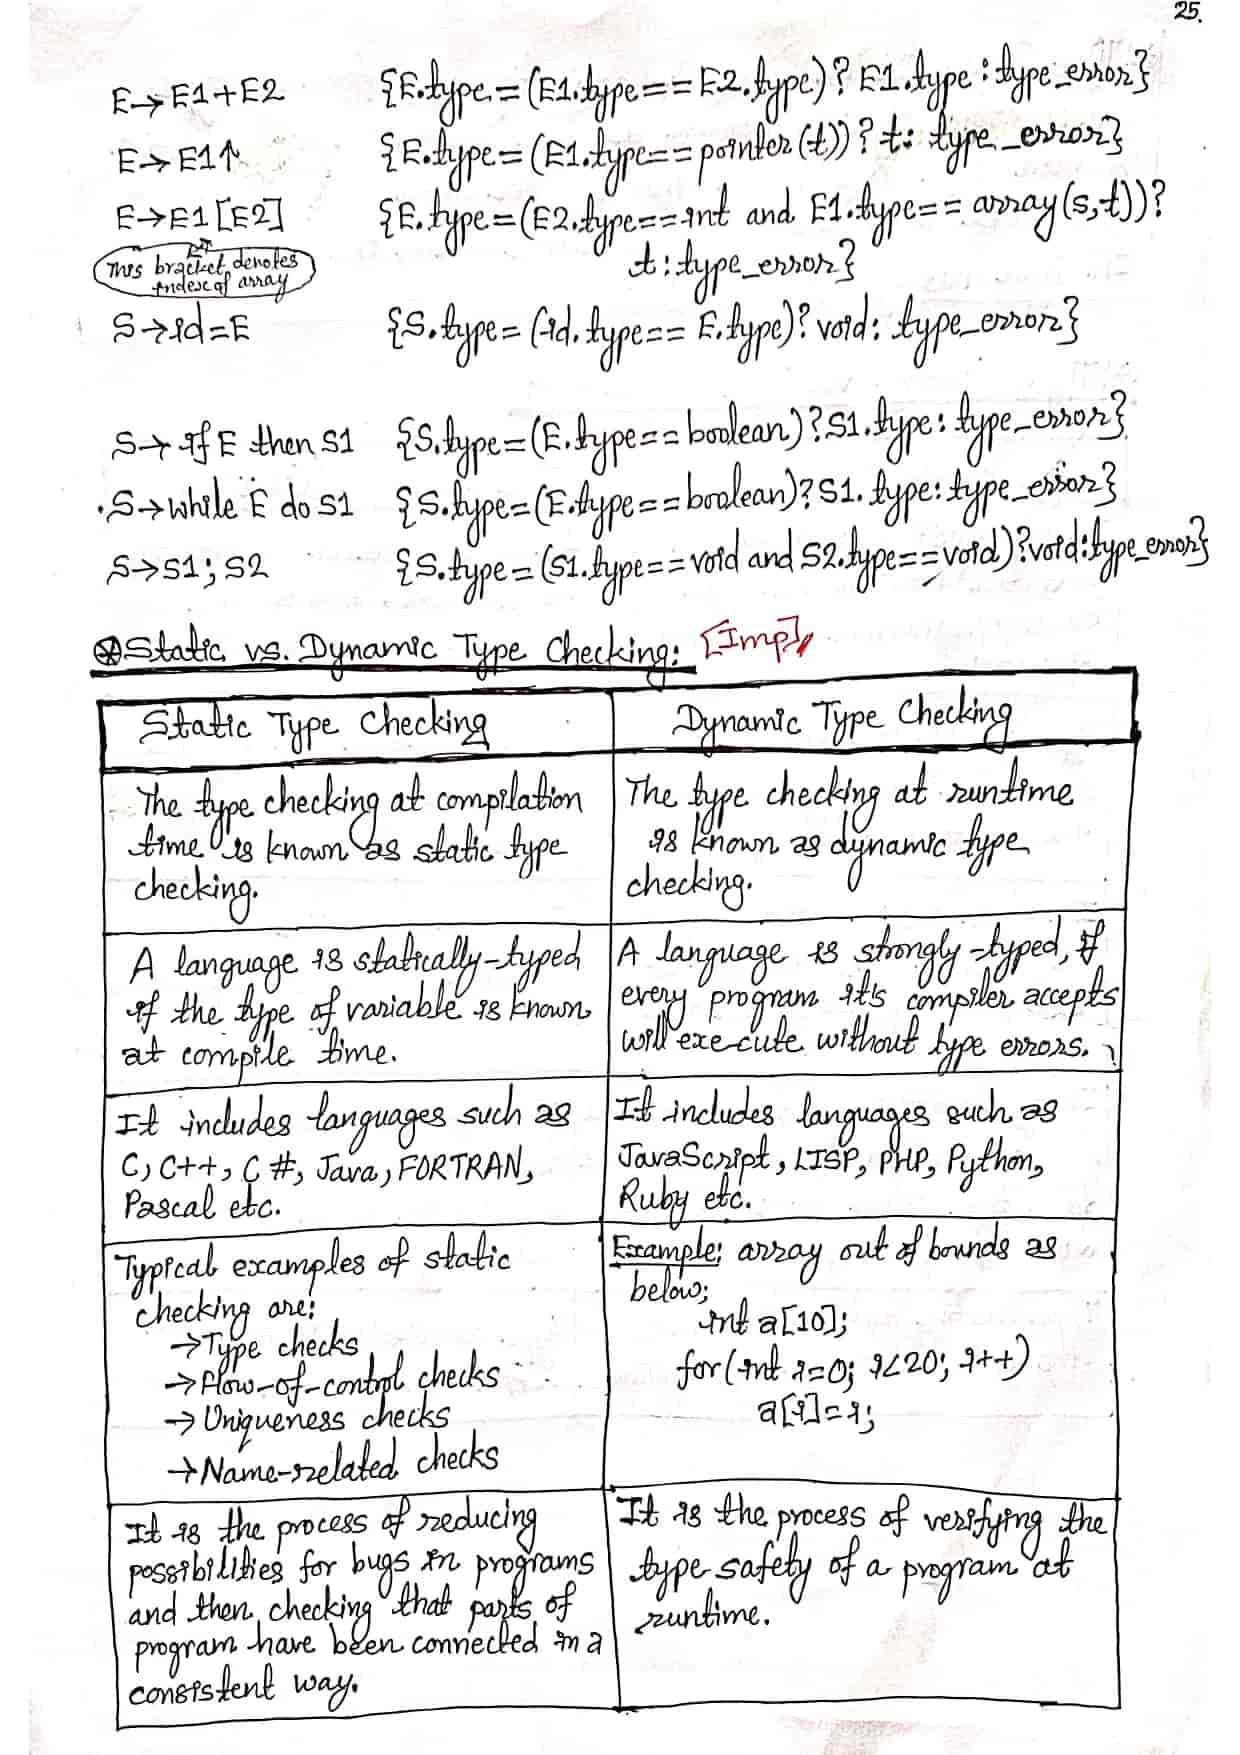 25.
E→E1+E2 {E.type=(E1.type==E2.type)?E1.type:type_error}
E→E1↑ {E.type=(E1.type==pointer(t))?t:type_error}
E→E1[E2] {E.type=(E2.type==int and E1.type==array(s,t))?
t:type_error}
This bracket denotes
index of array
S→id=E {S.type=(id.type==E.type)?void:type_error}
S→if E then S1 {S.type=(E.type==boolean)?S1.type:type_error}
S→while E do S1 {S.type=(E.type==boolean)?S1.type:type_error}
S→S1;S2 {S.type=(S1.type==void and S2.type==void)?void:type_error}
Static vs. Dynamic Type Checking: [Imp]
Static Type Checking
The type checking at compilation
time is known as static type
checking.
Dynamic Type Checking
The type checking at runtime
is known as dynamic type
checking.
A language is statically-typed
if the type of variable is known
at compile time.
A language is strongly-typed, if
every program it's compiler accepts
will execute without type errors.
It includes languages such as
C, C++, C#, Java, FORTRAN,
Pascal etc.
It includes languages such as
JavaScript, LISP, PHP, Python,
Ruby etc.
Typical examples of static
checking are:
→Type checks
→Flow-of-control checks
→Uniqueness checks
→Name-related checks
Example: array out of bounds as
below;
int a[10];
for(int i=0; i<20; i++)
a[i]=i;
It is the process of reducing
possibilities for bugs in programs
and then checking that parts of
program have been connected in a
consistent way.
It is the process of verifying the
type safety of a program at
runtime.